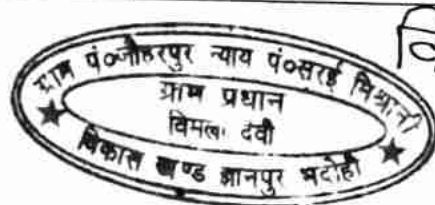 ग्राम पं०जौहरपुर न्याय पं०सरई मिश्रानी
ग्राम प्रधान
विमला देवी
विकास खण्ड ज्ञानपुर भदोही
वि